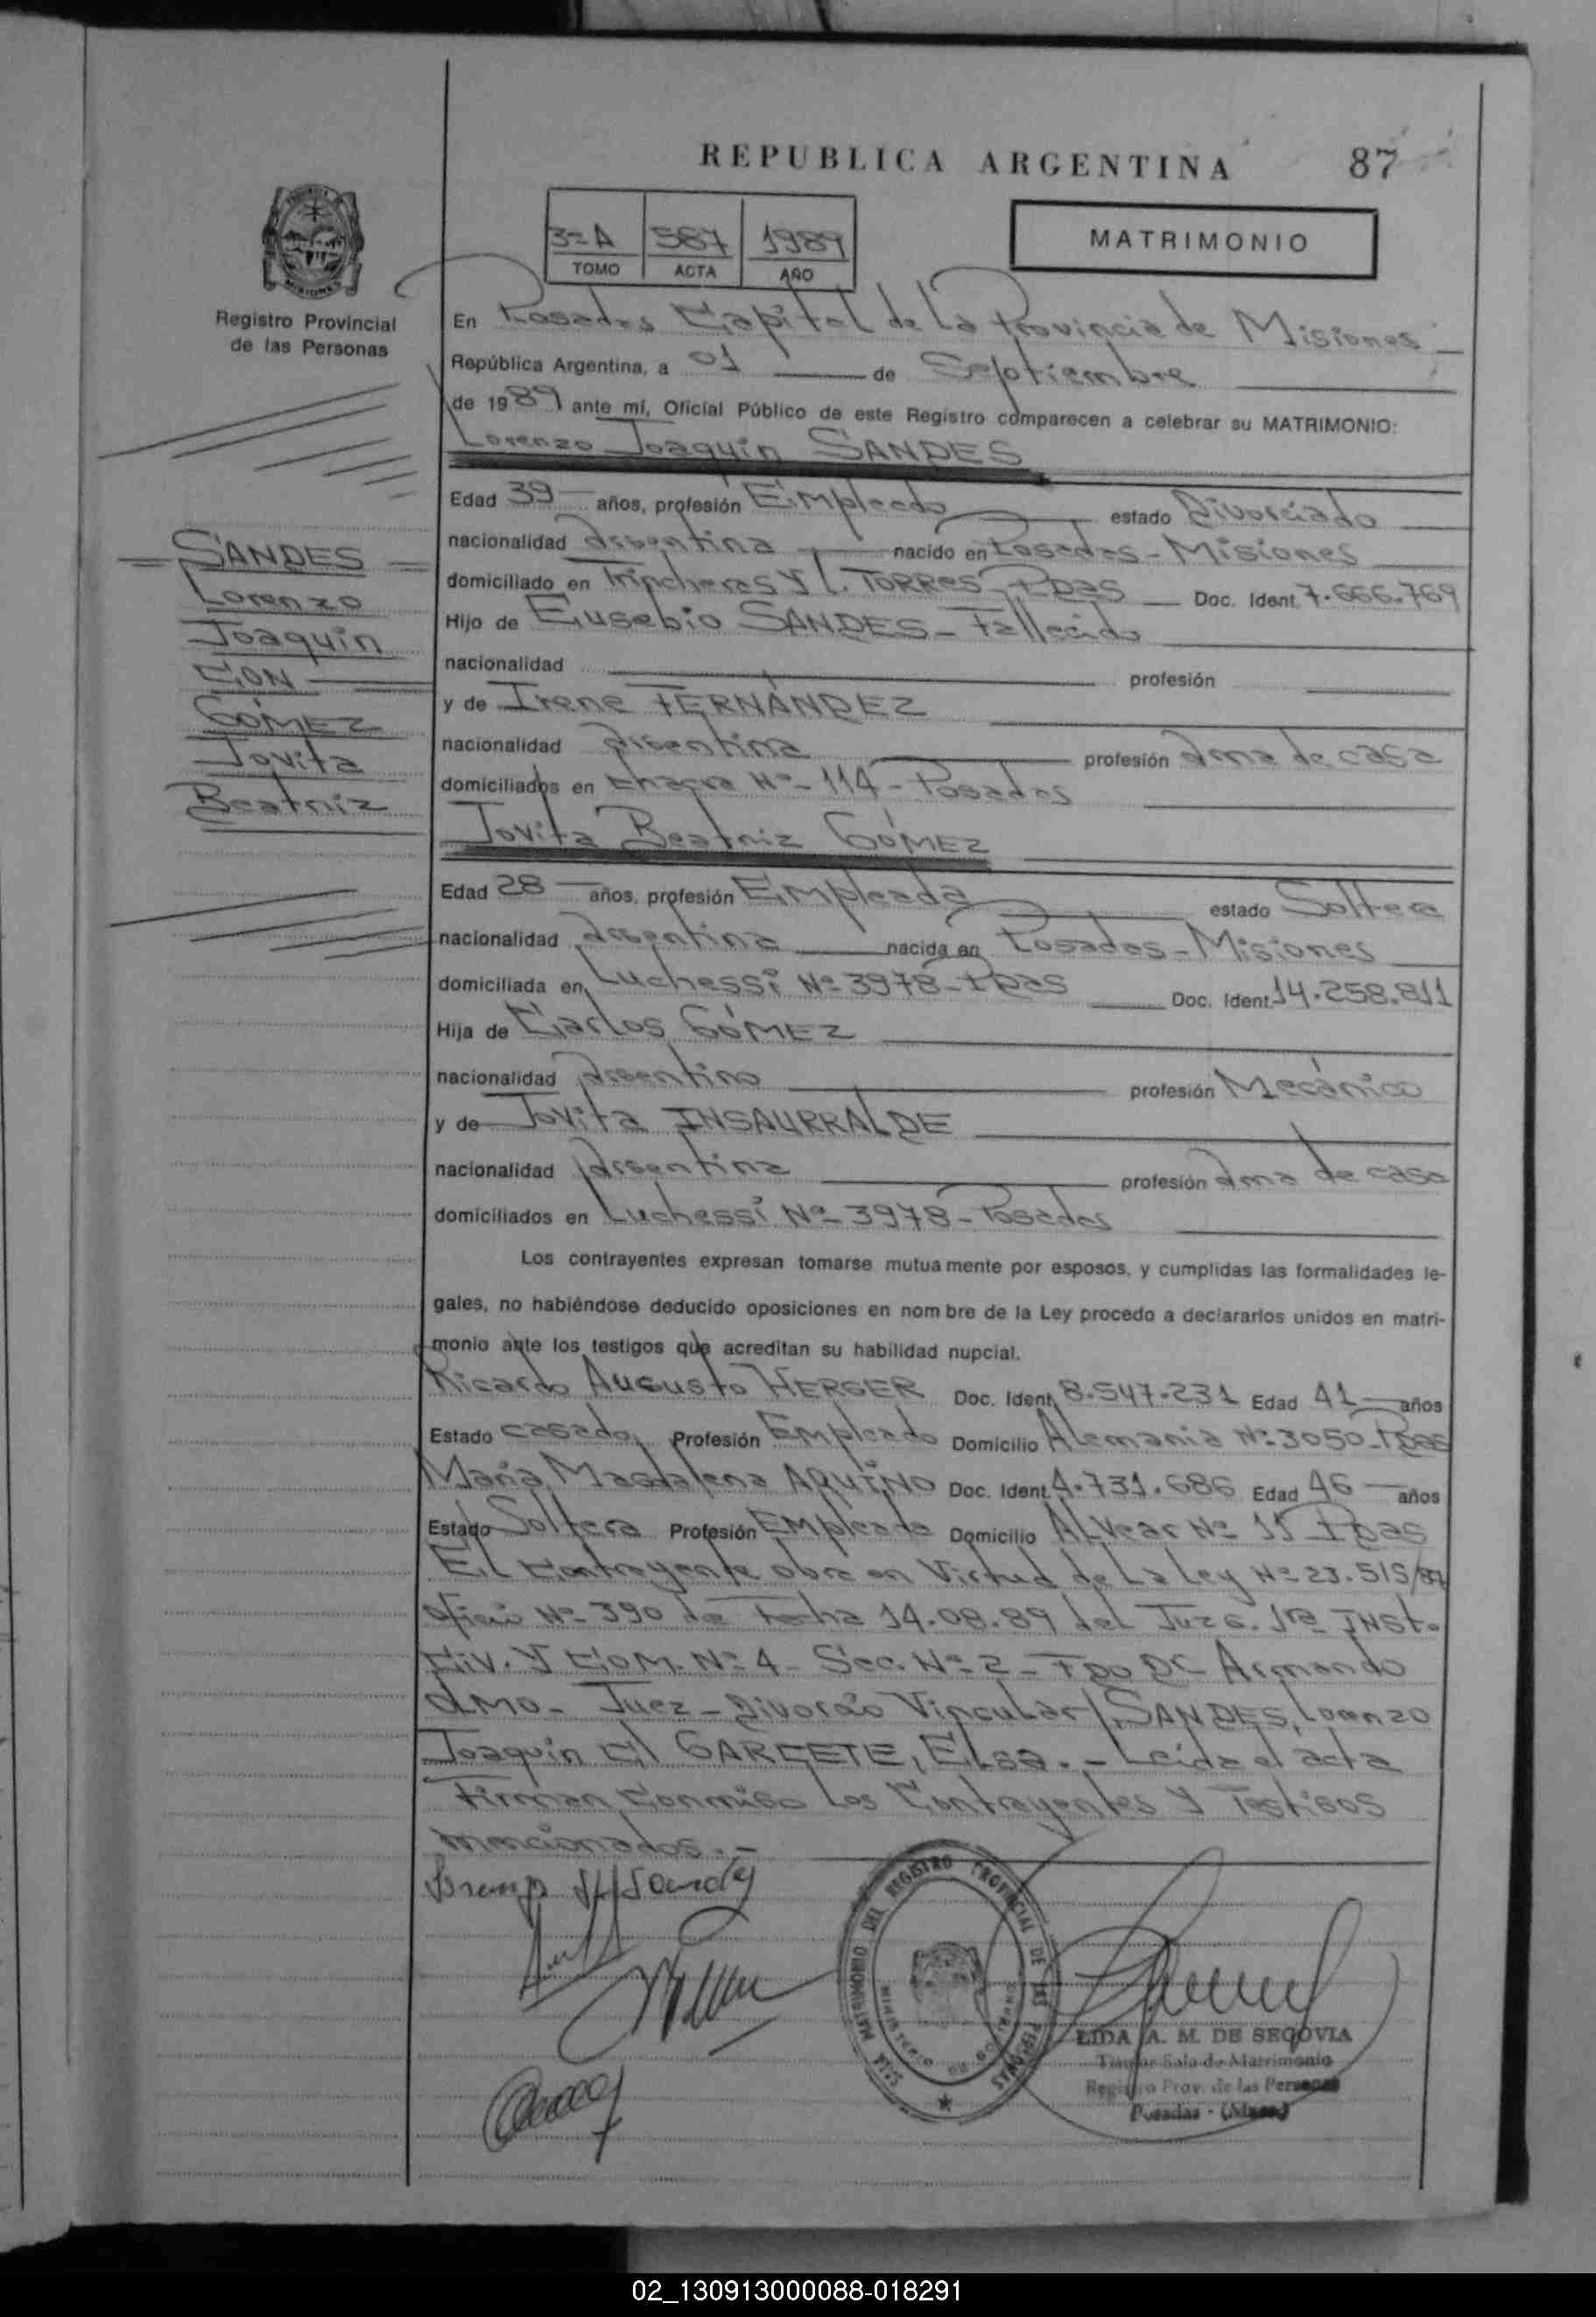 REPUBLICA ARGENTINA 87
3=A 587 1989
TOMO ACTA AÑO
MATRIMONIO
Registro Provincial
de las Personas
En Posadas Capital de La Provincia de Misiones
República Argentina, a 01 de Septiembre
de 1989 ante mí, Oficial Público de este Registro comparecen a celebrar su MATRIMONIO:
Lorenzo Joaquin SANDES
Edad 39 años, profesión Empleado estado Divorciado
nacionalidad Argentina nacido en Posadas - Misiones
domiciliado en Trincheras Y L. TORRES - Pdas Doc. Ident. 7.666.769
Hijo de Eusebio SANDES - Fallecido
nacionalidad profesión
y de Irene FERNÁNDEZ
nacionalidad Argentina profesión Ama de casa
domiciliados en Chacra Nº - 114 - Posadas
Jovita Beatriz GÓMEZ
Edad 28 años, profesión Empleada estado Soltera
nacionalidad Argentina nacida en Posadas - Misiones
domiciliada en Luchessi Nº 3978 - Pdas Doc. Ident. 14.258.811
Hija de Carlos GÓMEZ
nacionalidad Argentino profesión Mecánico
y de Jovita INSAURRALDE
nacionalidad Argentina profesión Ama de casa
domiciliados en Luchessi Nº 3978 - Posadas
SANDES
Lorenzo
Joaquin
CON
GÓMEZ
Jovita
Beatriz
Los contrayentes expresan tomarse mutua mente por esposos, y cumplidas las formalidades le-
gales, no habiéndose deducido oposiciones en nom bre de la Ley procedo a declararlos unidos en matri-
monio ante los testigos que acreditan su habilidad nupcial.
Ricardo Augusto HERGER Doc. Ident. 8.547.231 Edad 41 años
Estado casado Profesión Empleado Domicilio Alemania Nº 3050 - Pdas
María Magdalena AQUINO Doc. Ident. 4.731.686 Edad 46 años
Estado Soltera Profesión Empleada Domicilio ALvear Nº 15 - Pdas
El Contrayente obra en Virtud de La Ley Nº 23.515/87
oficio Nº 390 de Fecha 14.08.89 del Juzg. 1ra INSt.
Civ. Y COM. Nº 4 - Sec. Nº 2 - Fdo Dr Armando
Juez - Divorcio Vincular / SANDES, Lorenzo
Joaquin C/ GARCETE, Elsa. - Leída el acta
Firman Conmigo Los Contrayentes Y Testigos
mencionados. -
SALA MATRIMONIO DEL REGISTRO PROVINCIAL DE LAS PERSONAS
MINISTERIO DE GOBIERNO
LIDA A. M. DE SEGOVIA
Sala de Matrimonio
Registro Prov. de las Personas
Posadas - (Mnes)
02_130913000088-018291